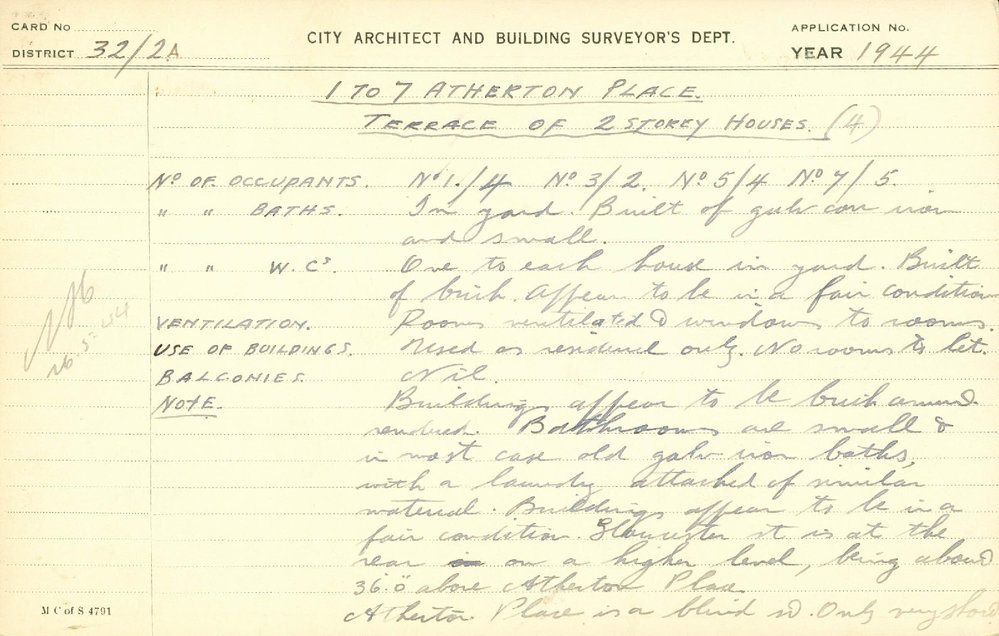 CARD No
DISTRICT 32/2A
CITY ARCHITECT AND BUILDING SURVEYOR'S DEPT.
APPLICATION No.
YEAR 1944
1 TO 7 ATHERTON PLACE.
TERRACE OF 2 STOREY HOUSES. (4)
No OF OCCUPANTS. No 1./4 No 3/2. No 5/4 No 7/5.
" " BATHS. In yard. Built of galv corr iron
and small.
" " W.Cs One to each house in yard. Built
of brick. Appear to be in a fair condition
VENTILATION. Rooms ventilated & windows to rooms.
USE OF BUILDINGS. Used as residential only. No rooms to let.
BALCONIES. Nil.
NOTE. Buildings appear to be brick
rendered. Bathrooms are small &
in most case old galv iron baths,
with a laundry attached of similar
material. Buildings appear to be in a
fair condition. Gloucester st is at the
rear on a higher level, being about
36'.0" above Atherton Place
Atherton Place is a blind rd. Only very short
26.5.44
M C of S 4791